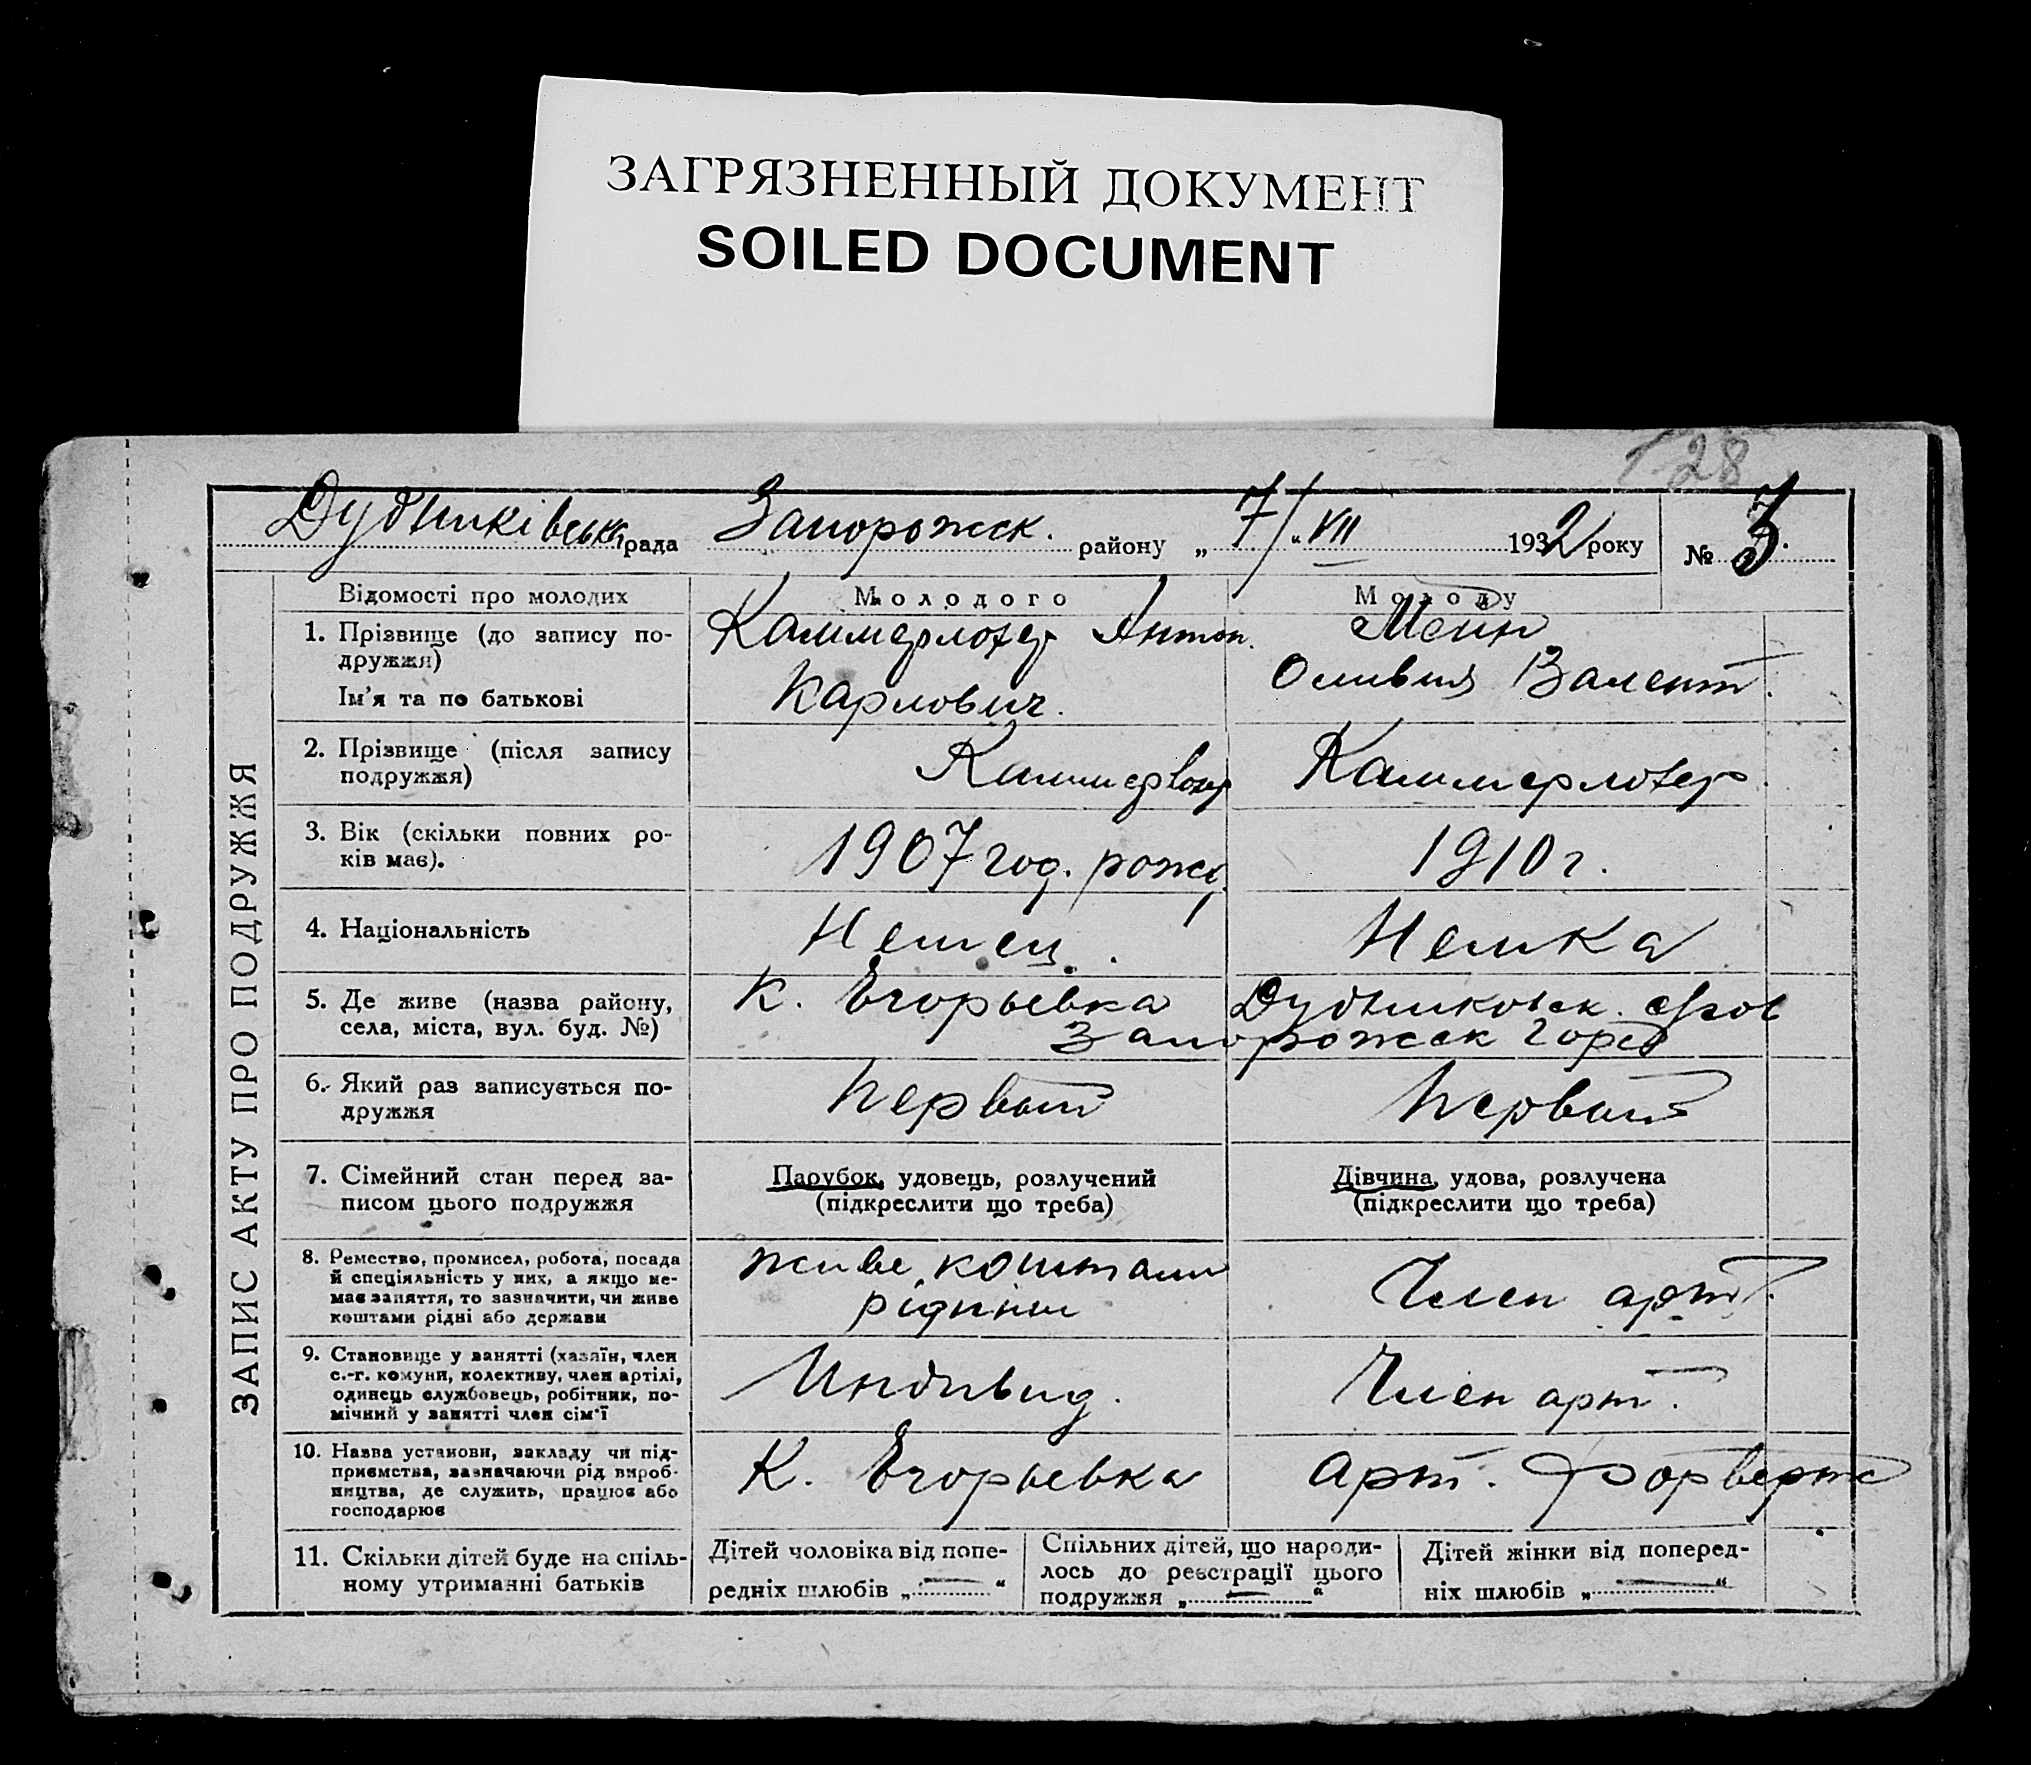 ЗАГРЯЗНЕННЫЙ ДОКУМЕНТ
SOILED DOCUMENT
28
Дудниківська рада Запорожск. району „ 7/ “ VII 1932 року № 3.
ЗАПИС АКТУ ПРО ПОДРУЖЖЯ
Відомості про молодих Молодого Молоду
1. Прізвище (до запису подружжя) Каммерлохер Антон.
Ім'я та по батькові Карлович. Оливия Валент.
2. Прізвище (після запису подружжя) Каммерлохер Каммерлохер
3. Вік (скільки повних років має). 1907 год. рожд. 1910 г.
4. Національність Немец. Немка
5. Де живе (назва району, села, міста, вул. буд. №) К. Егорьевка Дудниковск.
Запорожск
6. Який раз записується подружжя Первый Первый
7. Сімейний стан перед записом цього подружжя Парубок, удовець, розлучений Дівчина, удова, розлучена
(підкреслити що треба) (підкреслити що треба)
8. Ремество, промисел, робота, посада й спеціяльність у них, а якщо немає заняття, то зазначити, чи живе коштами рідні або держави живе коштами рідним Член арт.
9. Становище у занятті (хазяїн, член с.-г. комуни, колективу, член артілі, одинець службовець, робітник, помічний у занятті член сім'ї Индивид. Член арт.
10. Назва установи, закладу чи підприємства, зазначаючи рід виробництва, де служить, працює або господарює К. Егорьевка Арт. Форвертс
11. Скільки дітей буде на спільному утриманні батьків Дітей чоловіка від попередніх шлюбів „ — “ Спільних дітей, що народилось до реєстрації цього подружжя „ — “ Дітей жінки від попередніх шлюбів „ — “